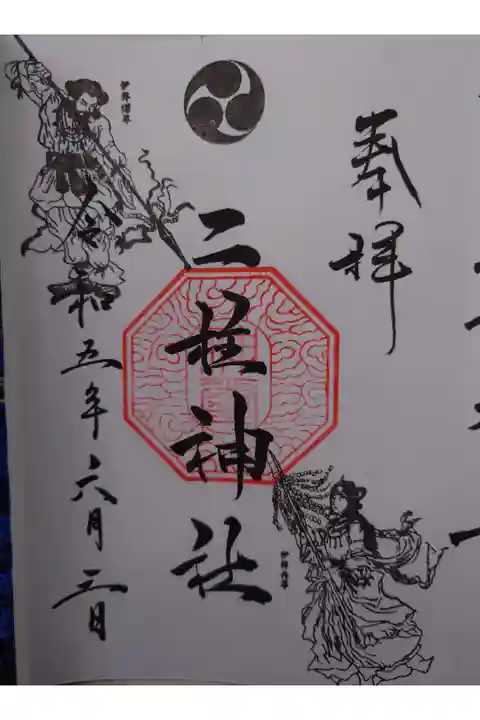 奉拝
二柱神社
令和五年六月三日
伊弉諾尊
伊弉冉尊